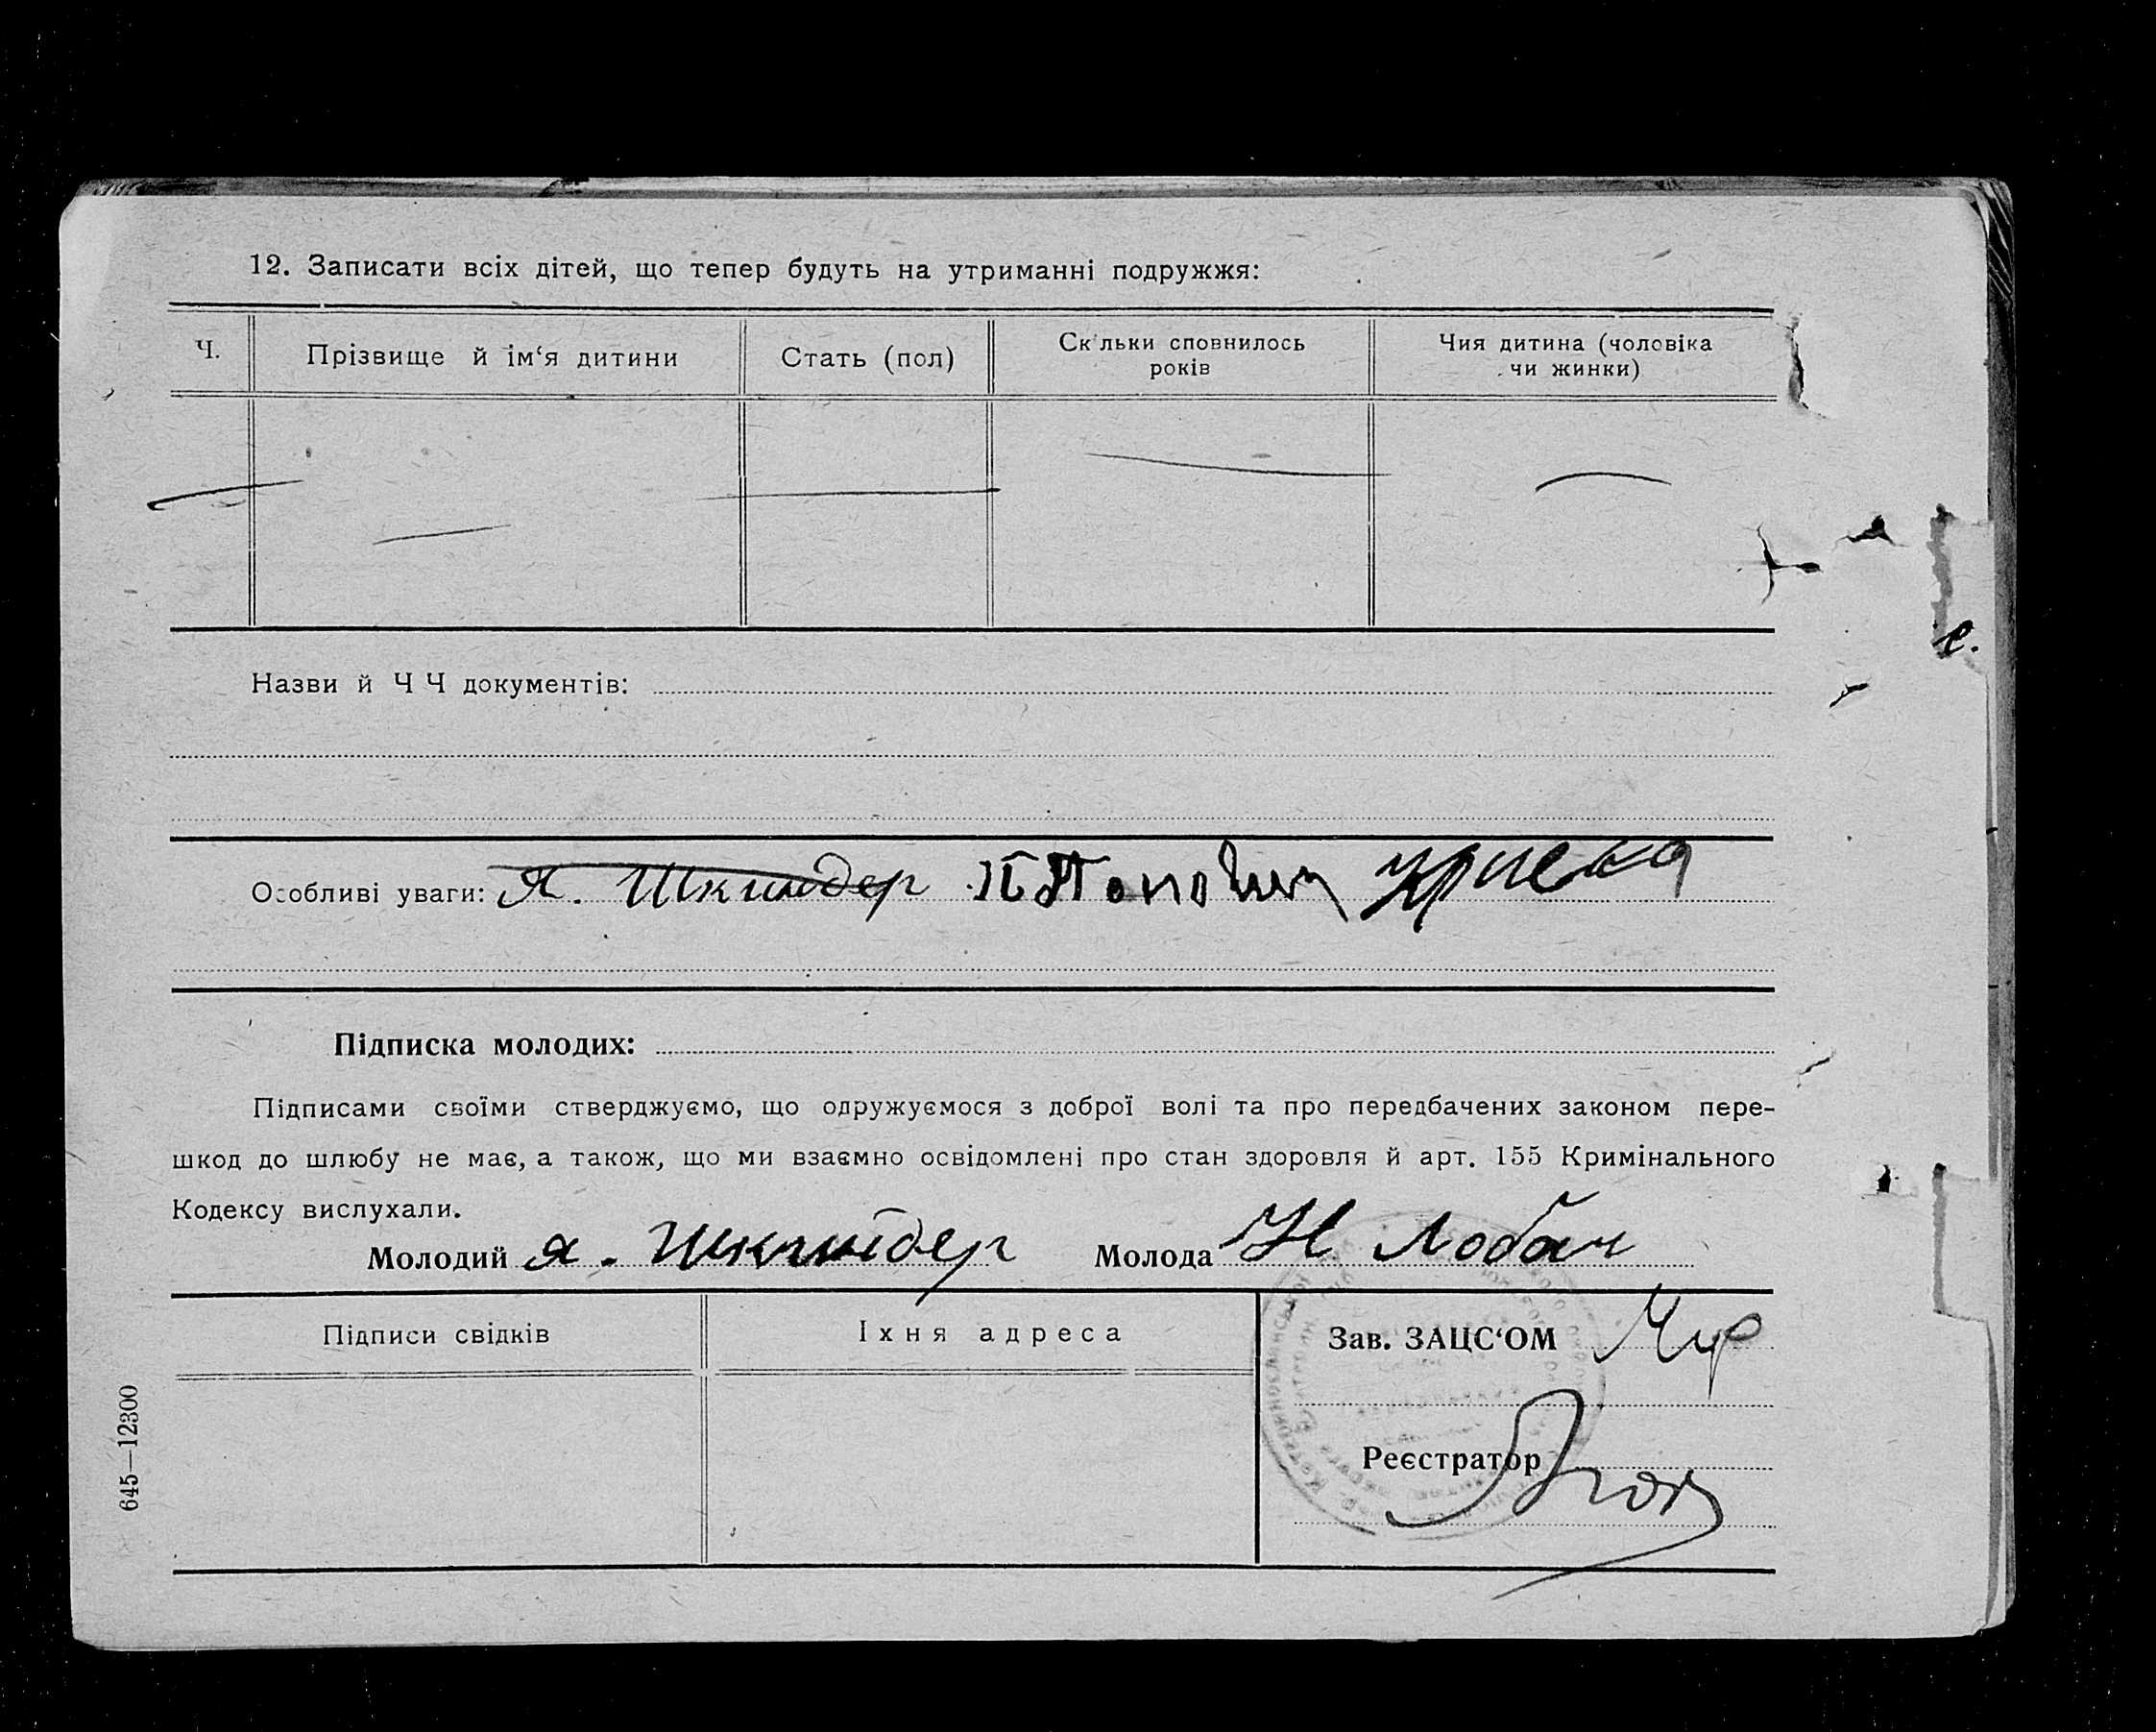 12. Записати всіх дітей, що тепер будуть на утриманні подружжя:
Ч.
Прізвище й ім‘я дитини
Стать (пол)
Ск льки сповнилось
років
Чия дитина (чоловіка
чи жинки)
Назви й Ч Ч документів:
Особливі уваги: Я. Шкиндер
Підписка молодих:
Підписами своїми стверджуємо, що одружуємося з доброї волі та про передбачених законом пере-
шкод до шлюбу не має, а також, що ми взаємно освідомлені про стан здоровля й арт. 155 Кримінального
Кодексу вислухали.
Молодий Я. Шкиндер Молода Н Лобач
Підписи свідків
Їхня адреса
Зав. ЗАЦС‘ОМ
Реєстратор
645—12300